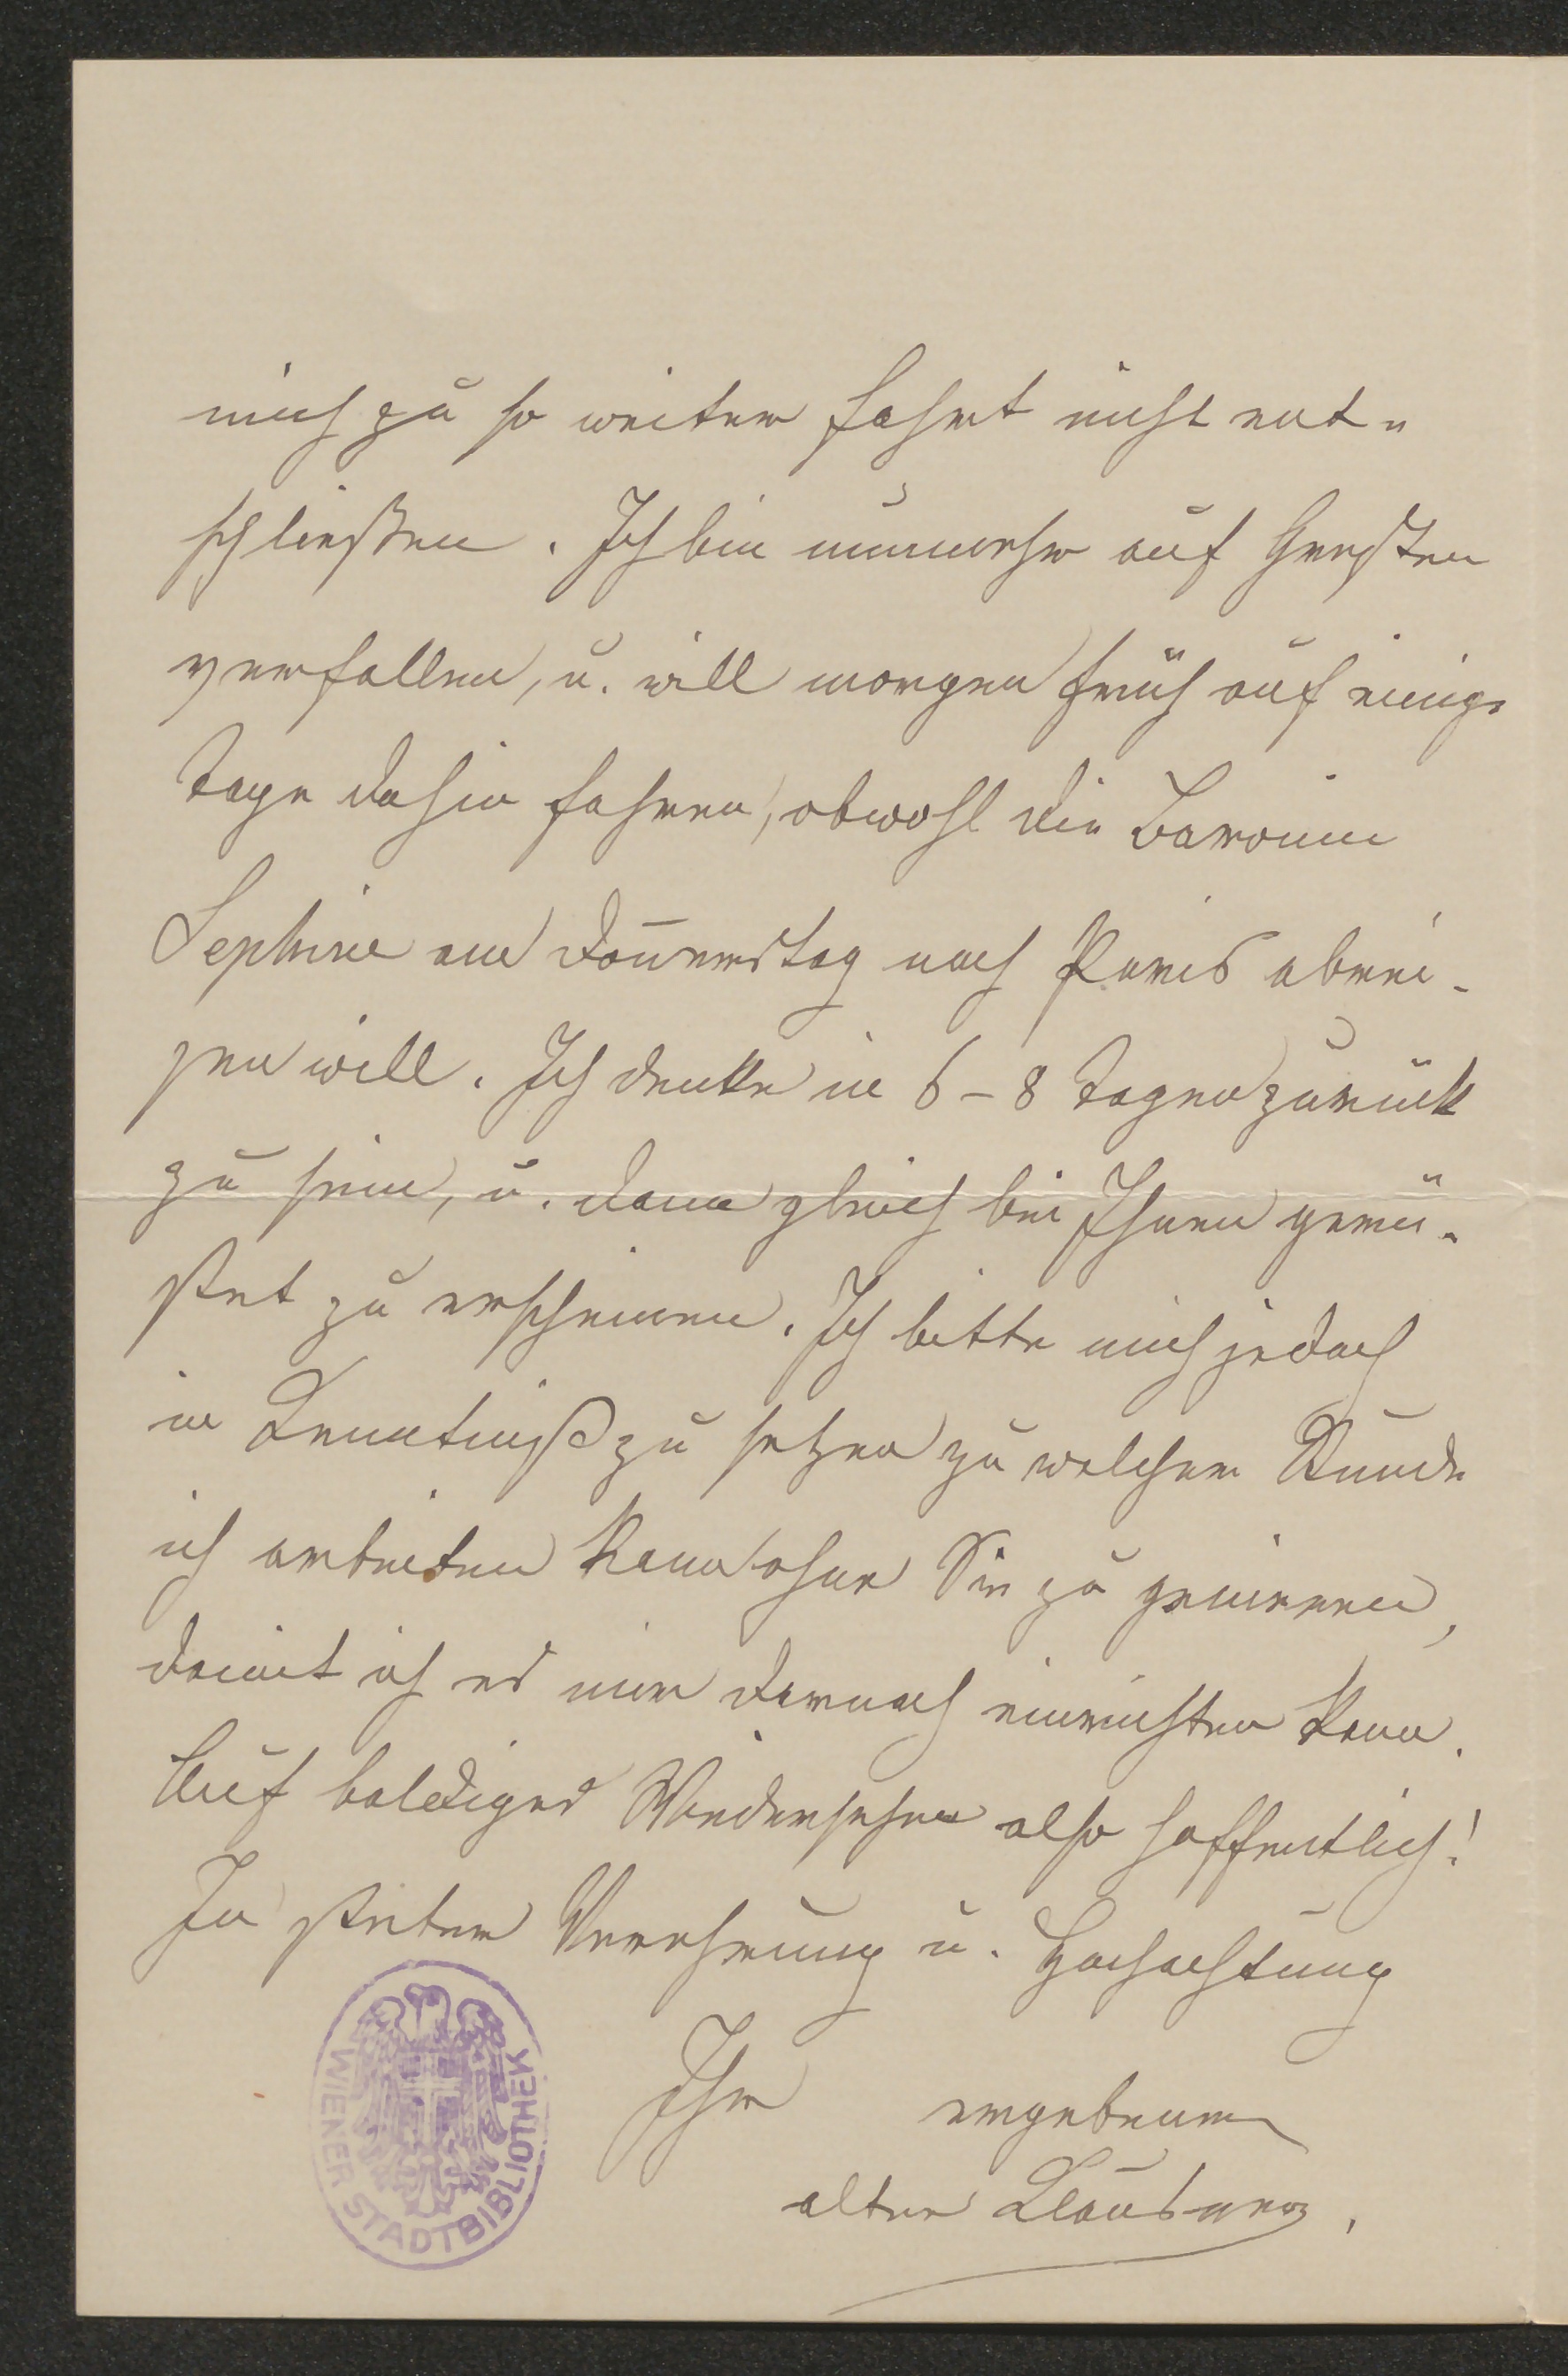 mich zu so weiter Fahrt nicht ent-
schließen. Ich bin nunmehr auf Gersten
verfallen, u. will morgen früh auf einige
Tage dahin fahren, obwohl die Baronin
Sephine am Donnerstag nach Paris abrei-
sen will. Ich denke in 6–8 Tagen zurück
zu sein, u. dann gleich bei Ihnen gerü-
stet zu erscheinen. Ich bitte mich jedoch
in Kenntniß zu setzen zu welcher Stunde
ich arbeiten kann ohne Sie zu geniren,
damit ich es mir darnach einrichten kann.
Auf baldiges Wiedersehen also hoffentlich!
In steter Verehrung u. Hochachtung
Ihr ergebener
alter Klausner.
WIENER STADTBIBLIOTHEK